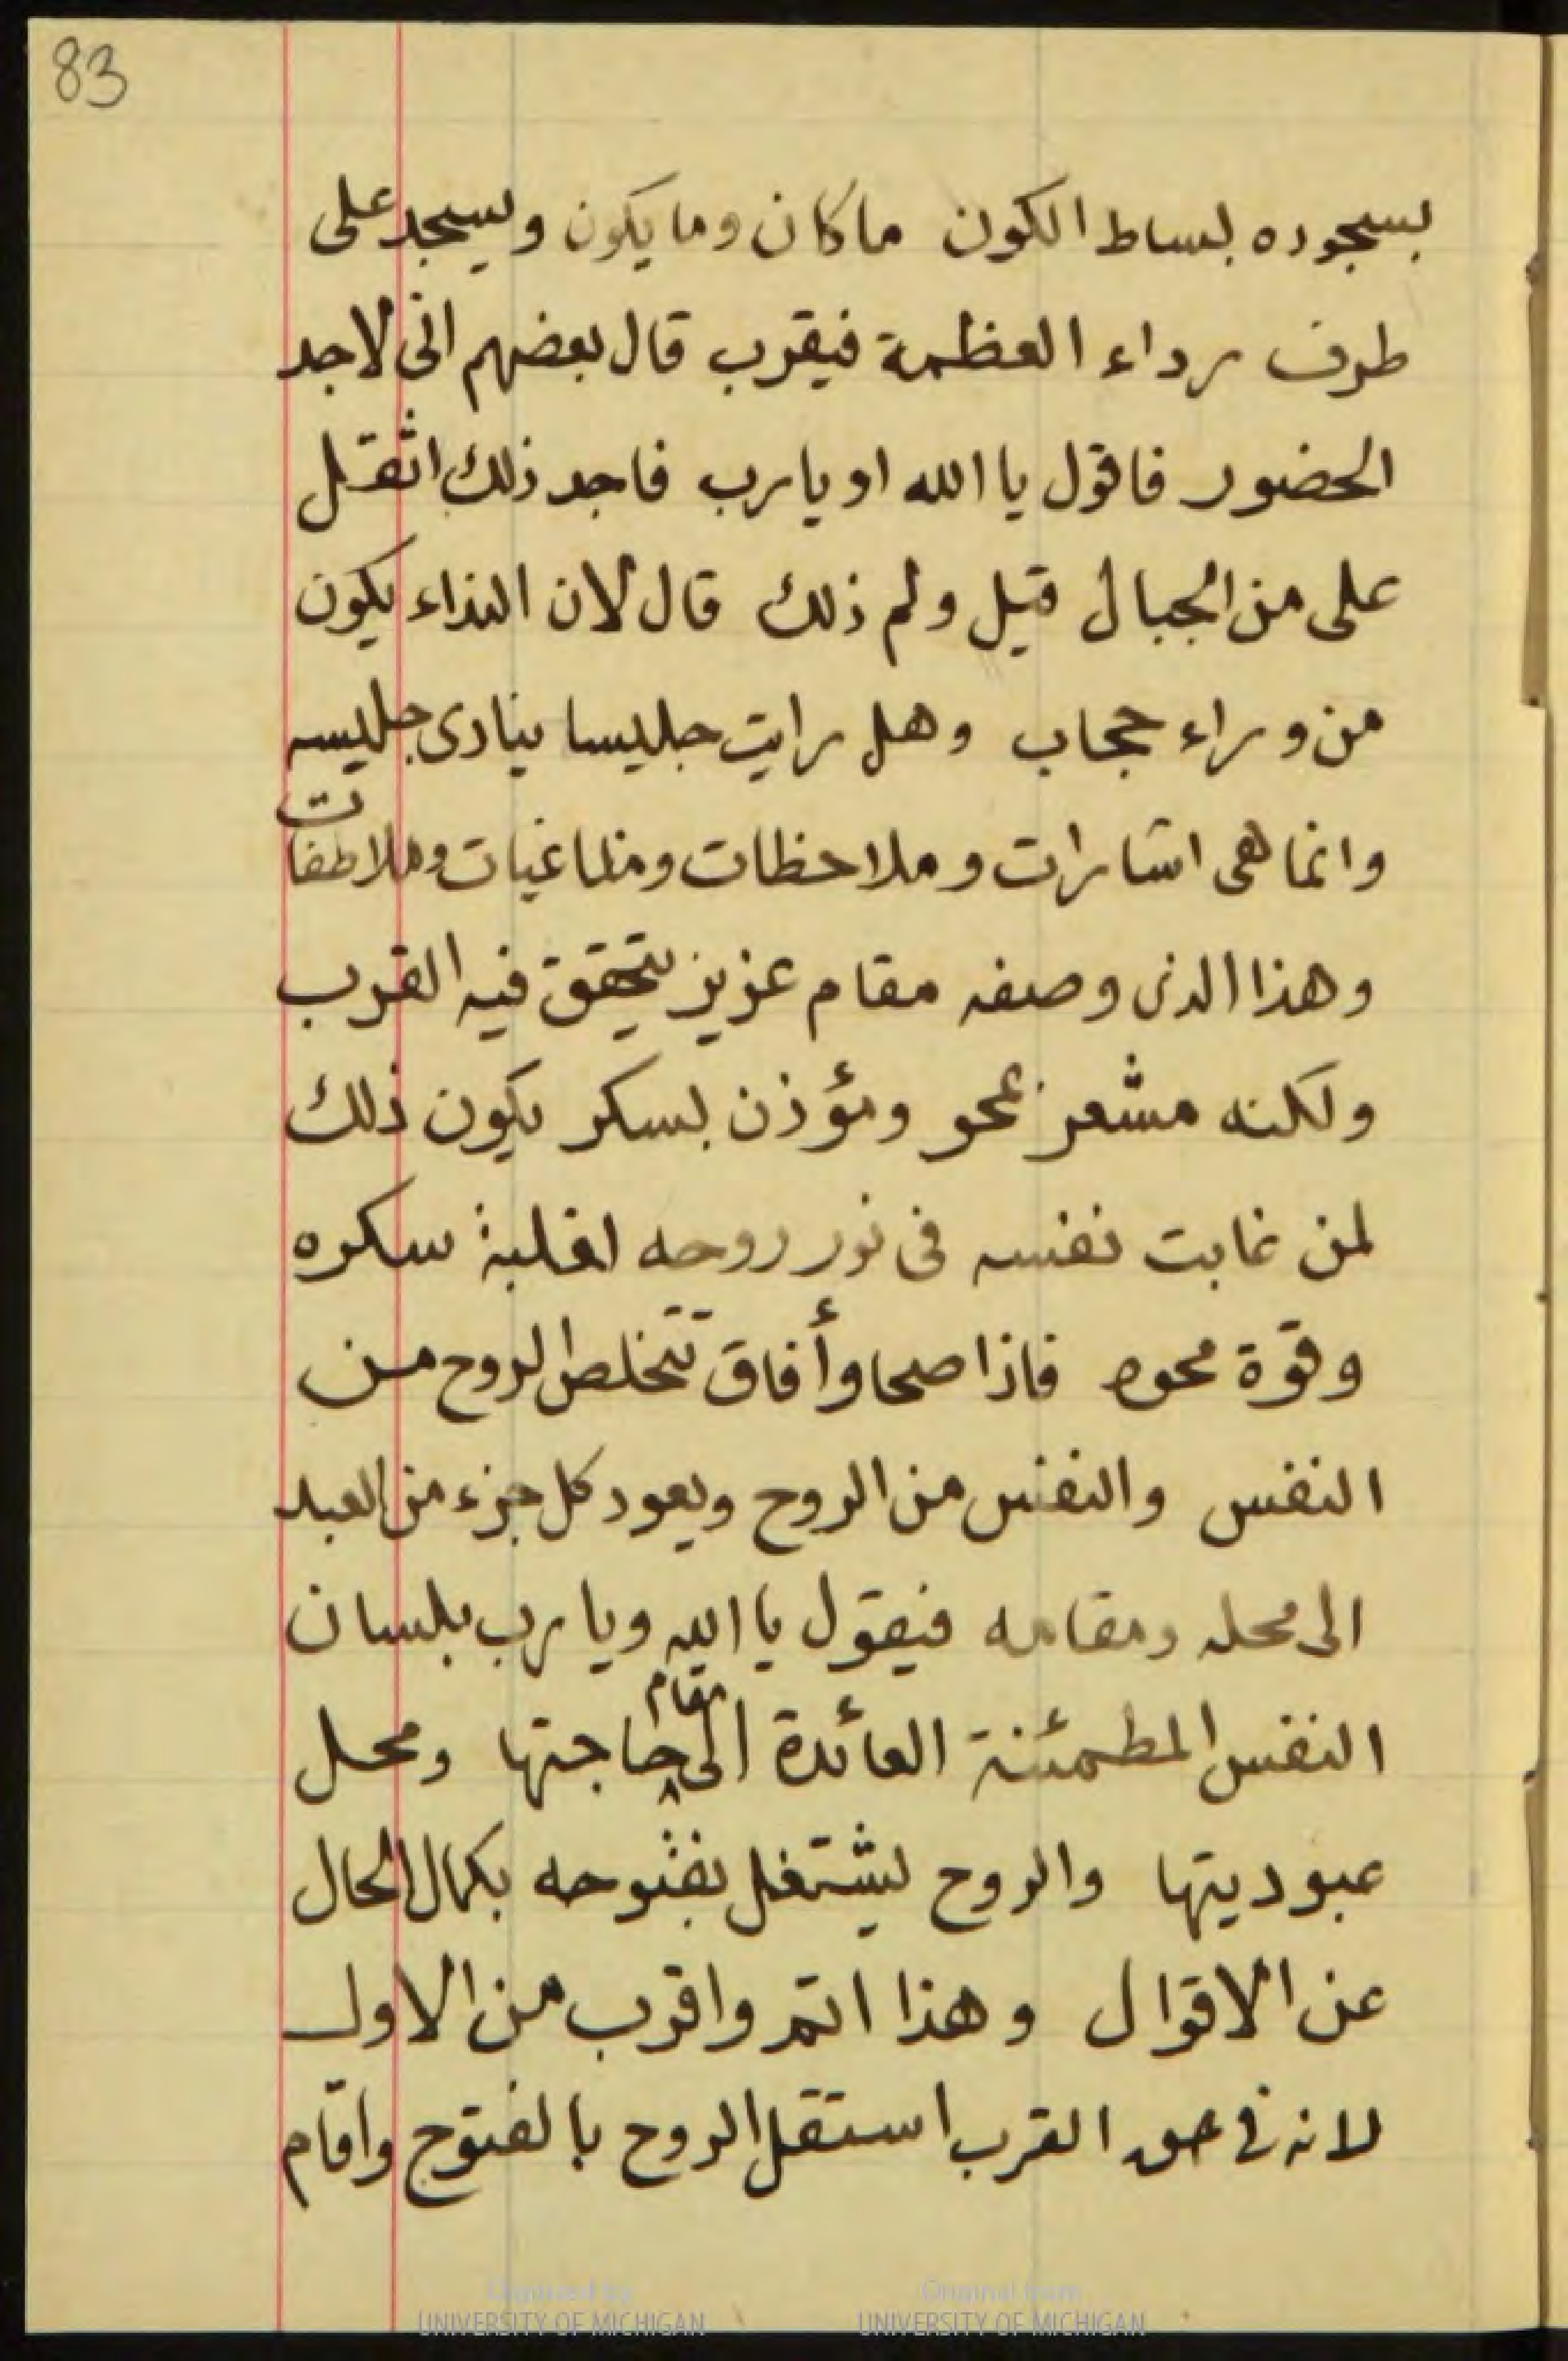 83
بسجوده بساط الكون ماكان وما يكون ويسجد على
طرف رداء العظمة فيقرب قال بعضهم انى لاجد
الحضور فاقول يا الله او يارب فاجد ذلك اثقل
على من الجبال قيل ولم ذلك قال لان النداء يكون
من وراء حجاب وهل رايت جليسا ينادى جليسه
وانما هى اشارات وملاحظات ومناغيات وملاطفات
وهذا الذى وصفه مقام عزيز يتحقق فيه القرب
ولكنه مشعر بمحو ومؤذن بسكر يكون ذلك
لمن غابت نفسه فى نور روحه لغلبة سكره
وقوة محوه فاذا صحا وأفاق تتخلص الروح من
النفس والنفس من الروح ويعود كل جزء من العبد
الى محله ومقامه فيقول يا الله ويارب بلسان
النفس المطمئنة العائدة الى مقام حاجتها ومحل
عبوديتها والروح يشتغل بفتوحه بكمال الحال
عن الاقوال وهذا اتم واقرب من الاول
لانه فى حق القرب استقل الروح بالفتوح واقام
Digitized by
UNIVERSITY OF MICHIGAN
Original from
UNIVERSITY OF MICHIGAN